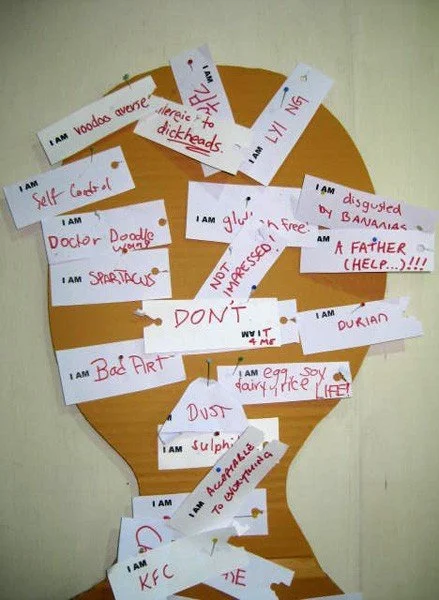 I AM
I AM voodoo averse
allergic to
dickheads.
I AM LYING
I AM
Self Control
I AM
disgusted
by BANANAS
I AM
Doctor Doodle
I AM
in Free!
I AM
A FATHER
(HELP...)!!!
I AM SPARTACUS
NOT
IMPRESSED!
DON'T
I AM
WAIT
4 ME
I AM
DURIAN
I AM Bad Art
I AM egg, soy
dairy, rice LIFE!
DUST
I AM
I AM ACCEPTABLE
TO EVERYTHING
I AM
I AM
KFC